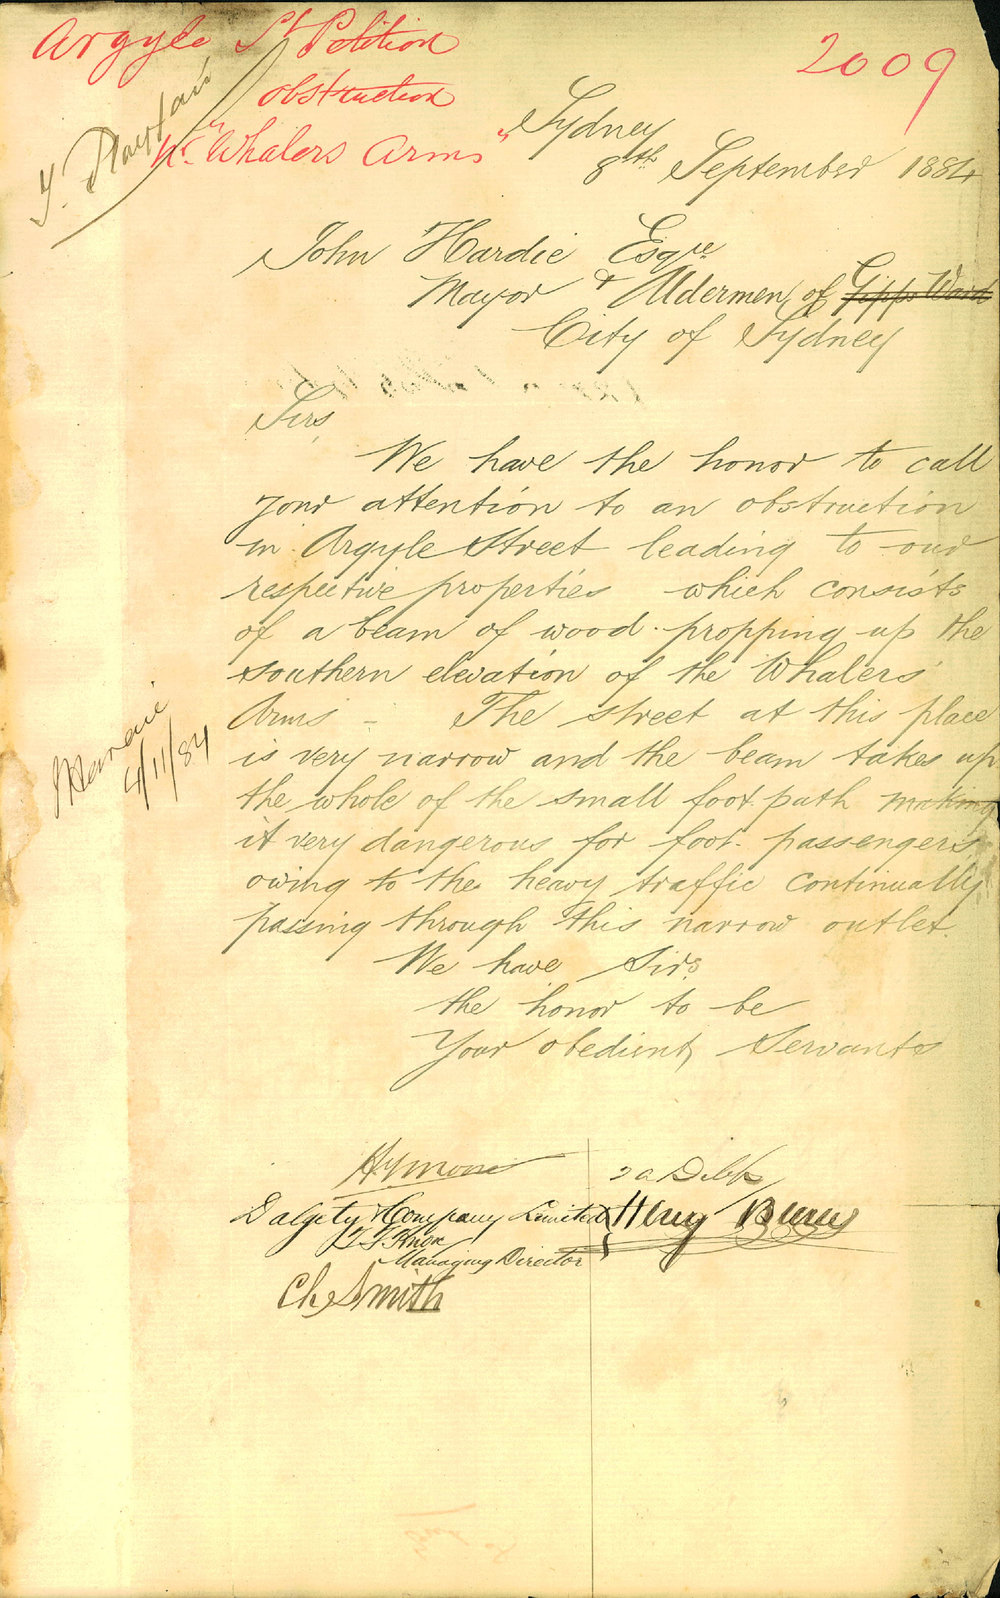 Argyle St Petition
obstruction
nr "Whalers Arms"
2009
Sydney
8th September 1884
John Hardie Esqre
Mayor & Aldermen, of Gipps Ward
City of Sydney
Sirs,
We have the honor to call
your attention to an obstruction
in Argyle Street leading to our
respective properties which consists
of a beam of wood propping up the
southern elevation of the Whalers'
Arms - The street at this place
is very narrow and the beam takes up
the whole of the small foot path making
it very dangerous for foot-passengers
owing to the heavy traffic continually
passing through this narrow outlet.
We have, Sirs
the honor to be
Your obedient, Servants
4/11/84
Dalgety & Company Limited
Managing Director
Chs Smith
Henry Burns